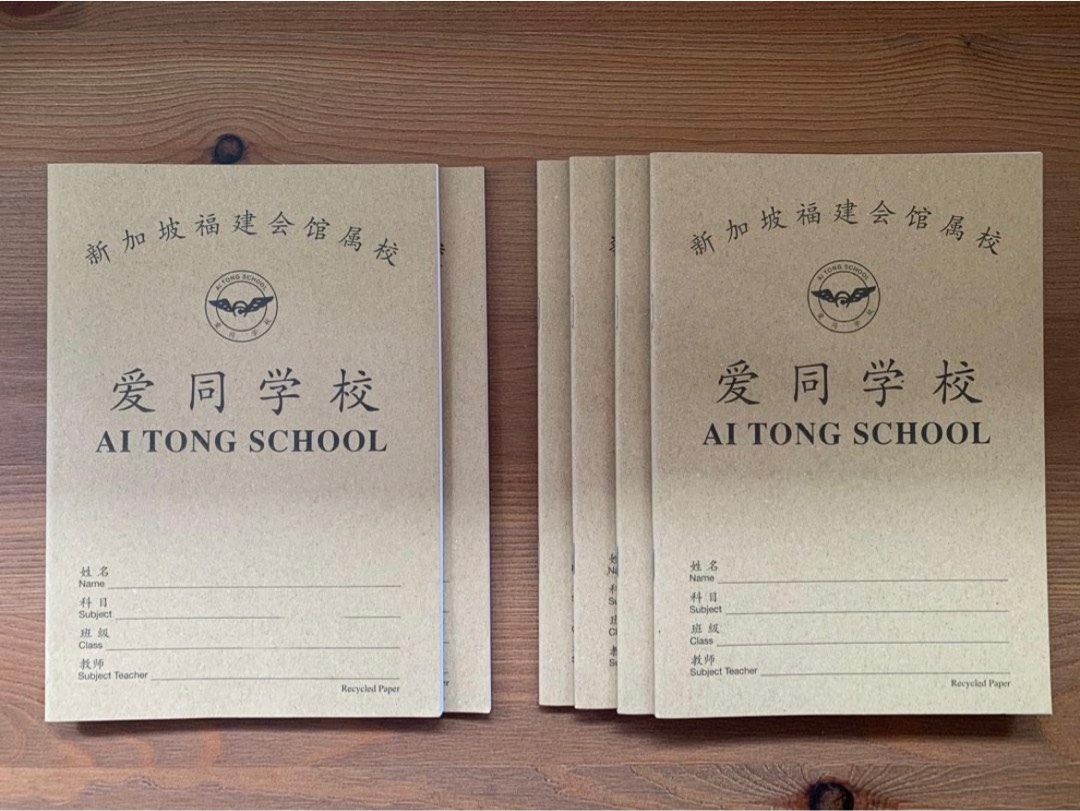 新加坡福建会馆属校
AI TONG SCHOOL
爱同学校
爱同学校
AI TONG SCHOOL
姓名
Name
科目
Subject
班级
Class
教师
Subject Teacher
Recycled Paper
新加坡福建会馆属校
AI TONG SCHOOL
爱同学校
爱同学校
AI TONG SCHOOL
姓名
Name
科目
Subject
班级
Class
教师
Subject Teacher
Recycled Paper